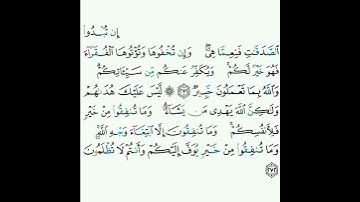 إِن تُبْدُوا۟
ٱلصَّدَقَٰتِ فَنِعِمَّا هِىَ ۖ وَإِن تُخْفُوهَا وَتُؤْتُوهَا ٱلْفُقَرَآءَ
فَهُوَ خَيْرٌ لَّكُمْ ۚ وَيُكَفِّرُ عَنكُم مِّن سَيِّـَٔاتِكُمْ ۗ
وَٱللَّهُ بِمَا تَعْمَلُونَ خَبِيرٌ ٢٧١ لَّيْسَ عَلَيْكَ هُدَىٰهُمْ
وَلَٰكِنَّ ٱللَّهَ يَهْدِى مَن يَشَآءُ ۗ وَمَا تُنفِقُوا۟ مِنْ خَيْرٍ
فَلِأَنفُسِكُمْ ۚ وَمَا تُنفِقُونَ إِلَّا ٱبْتِغَآءَ وَجْهِ ٱللَّهِ ۚ
وَمَا تُنفِقُوا۟ مِنْ خَيْرٍ يُوَفَّ إِلَيْكُمْ وَأَنتُمْ لَا تُظْلَمُونَ ٢٧٢